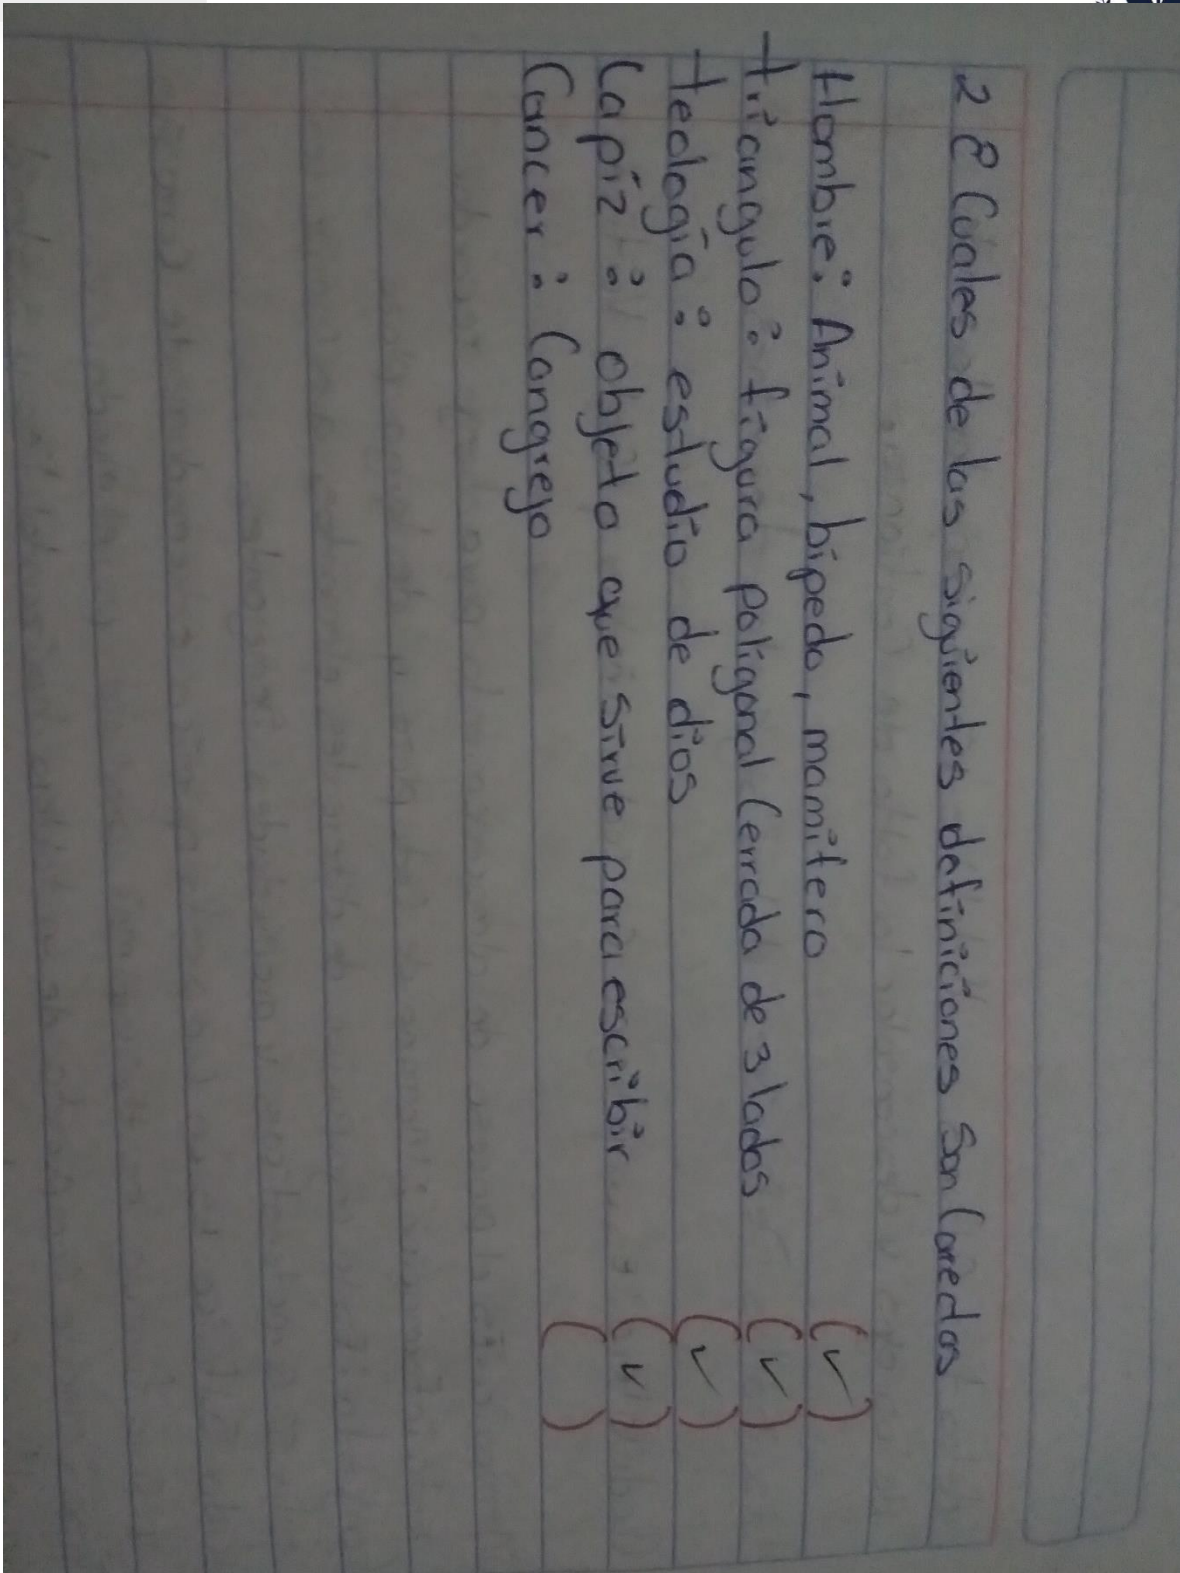 2 ¿Cuales de las siguientes definiciones son Corectas
Hombre: Animal, bipedo, mamifero (✓)
triangulo: figura poligonal Cerrada de 3 lados (✓)
teología: estudio de dios (✓)
Lapiz: objeto que sirve para escribir (✓)
Cancer: Cangrejo ( )